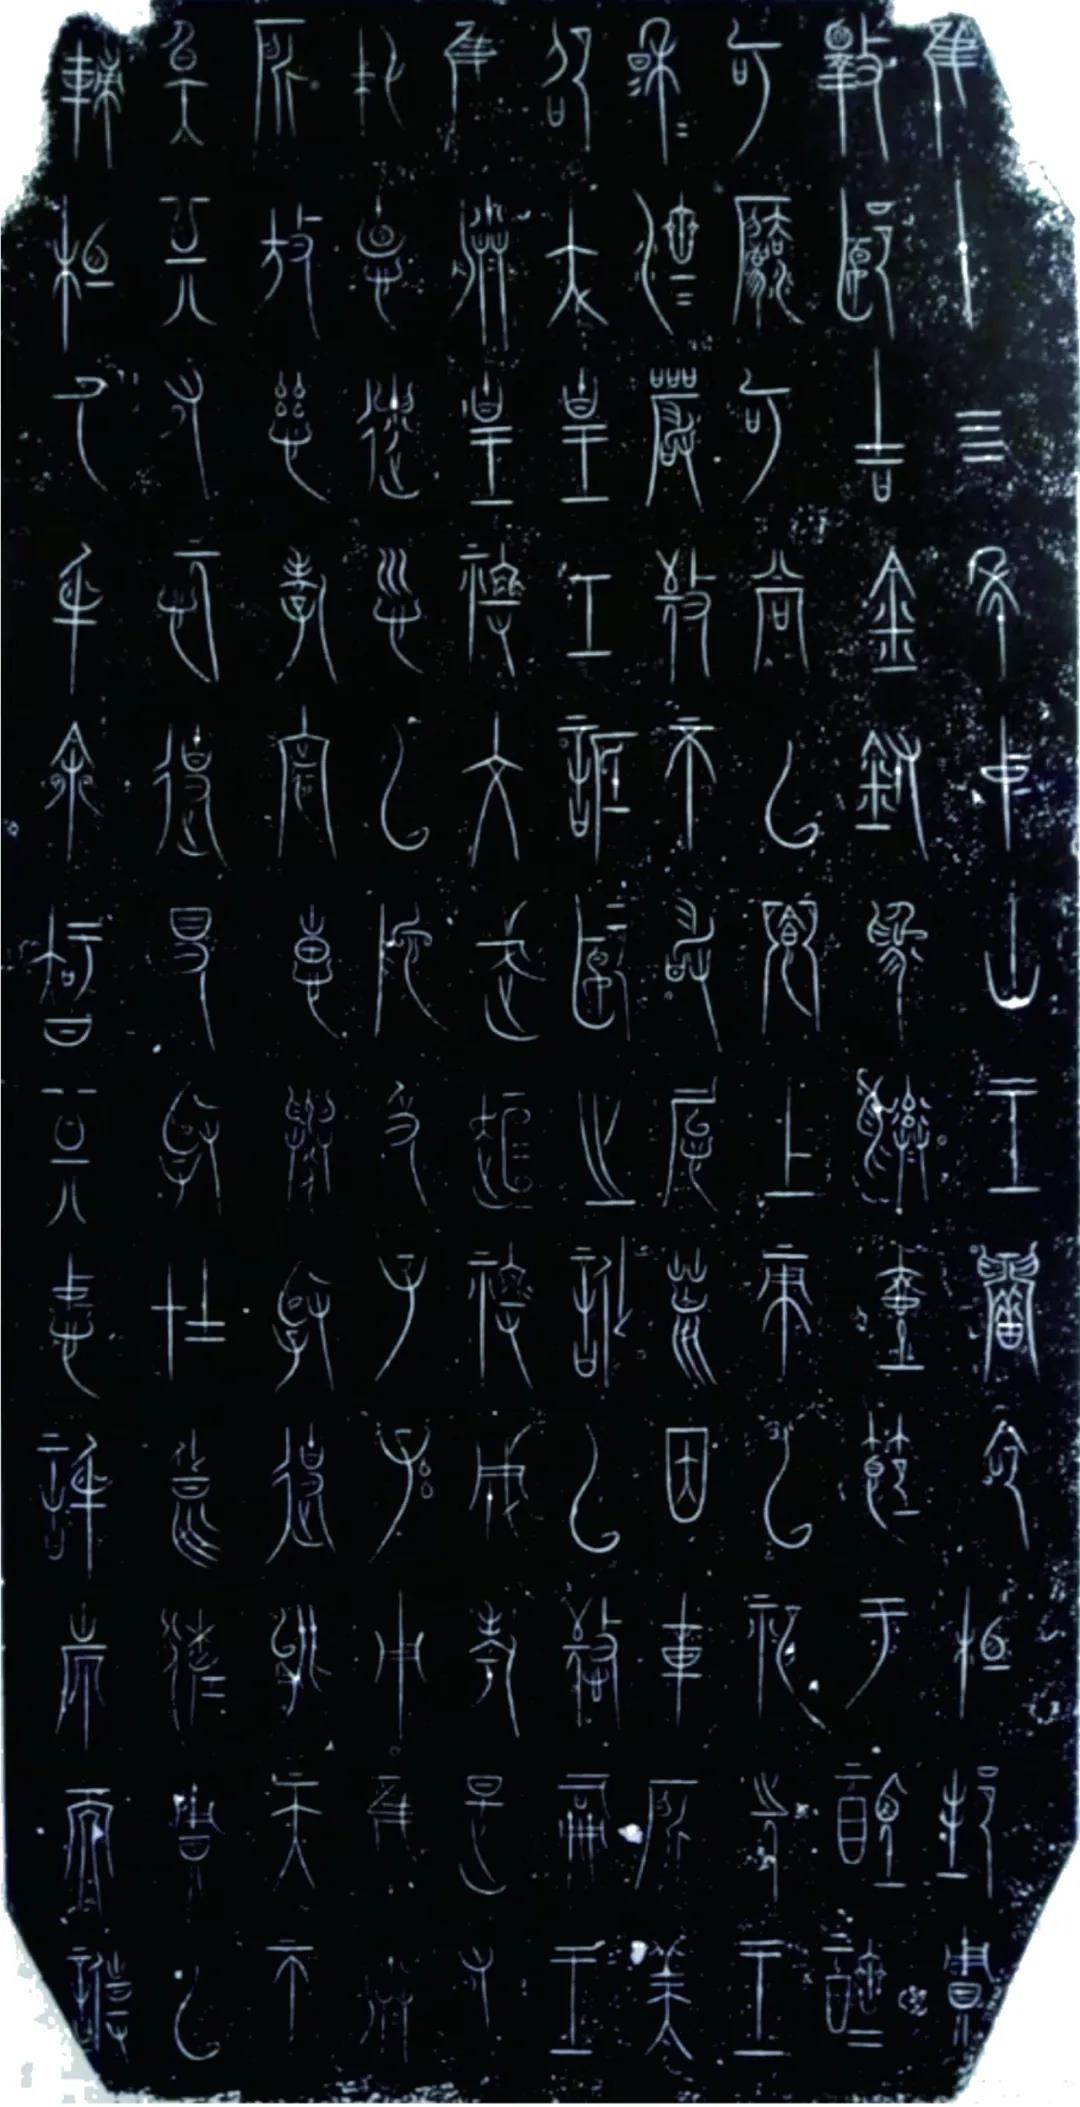 隹十四年中山王厝命相邦賙
斁郾吉金鑄爲彝壺節于禋齊
可灋可尚以鄉上帝以祀先王
穆=濟=嚴敬不敢怠荒因車所美
卲大皇工詆郾之訛以憼嗣王
隹朕皇祖文武桓祖成考是又
純德遺訓以陀及子孫用隹朕
所放慈孝寰惠舉孯使能天不
臭其又忨使得孯在良佐賙以
輔相氒身余智其忠信施而譐